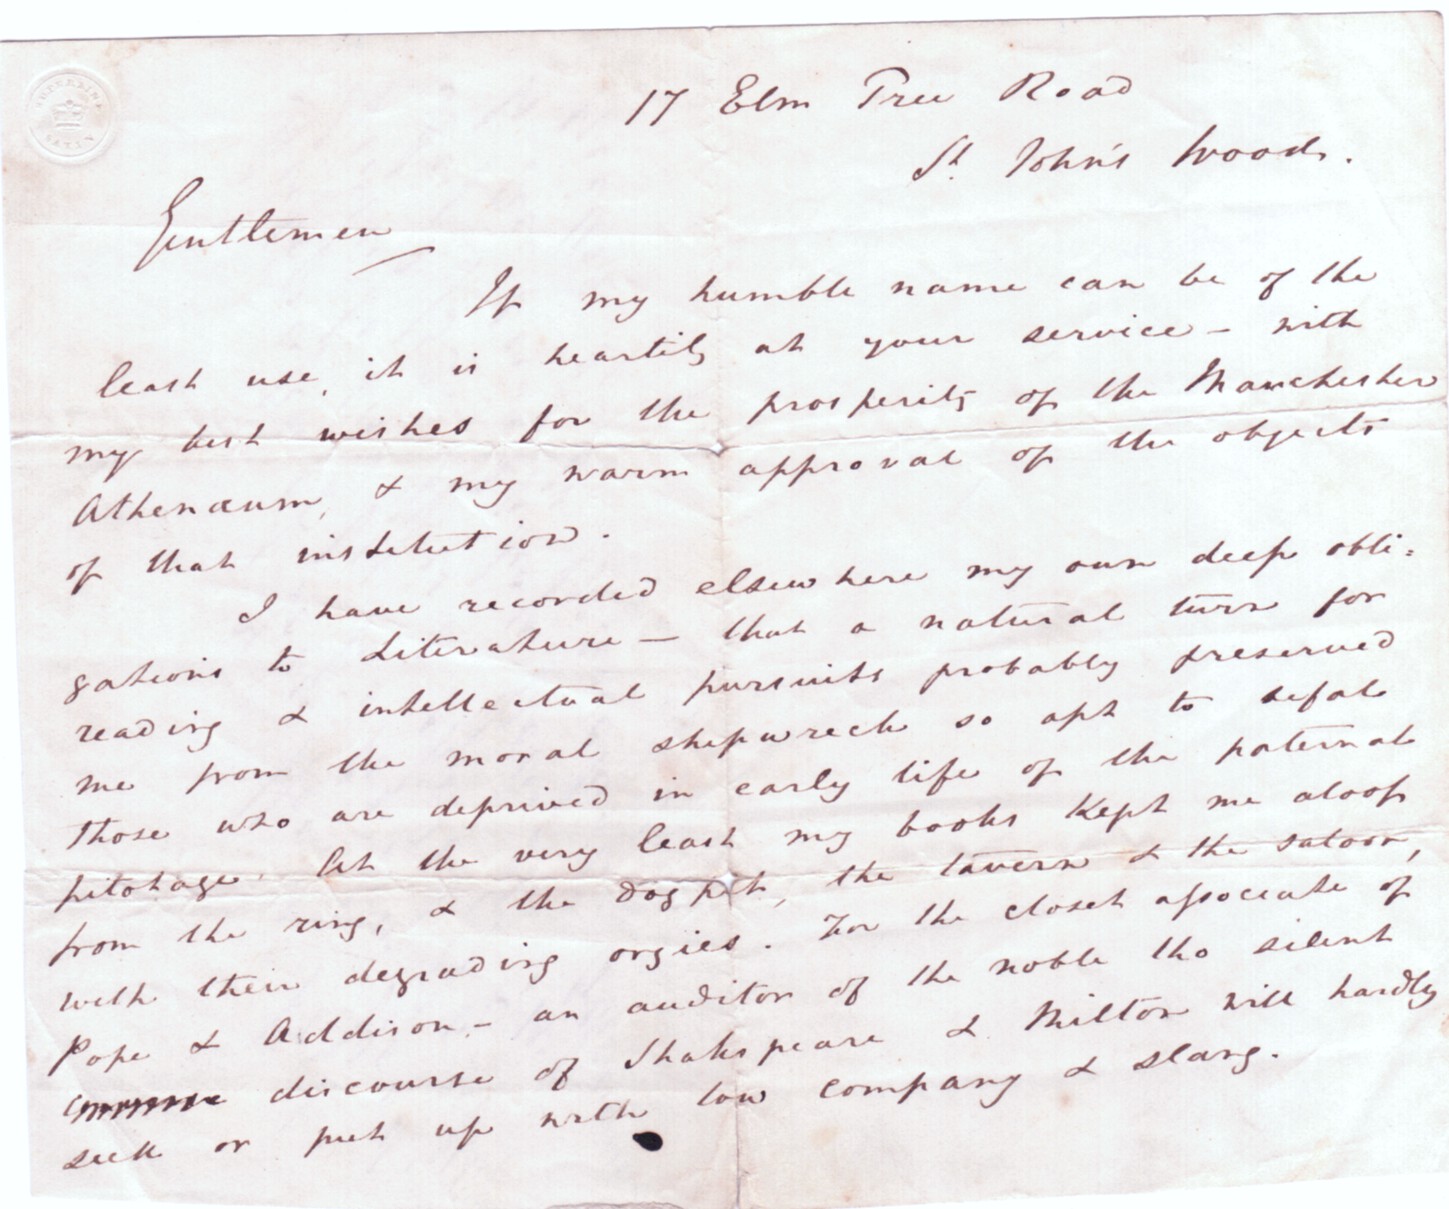 SUPERFINE SATIN
17 Elm Tree Road
St. John's Wood.
Gentlemen
If my humble name can be of the
least use, it is heartily at your service – with
my best wishes for the prosperity of the Manchester
Athenæum, & my warm approval of the objects
of that institution.
I have recorded elsewhere my own deep obli=
gations to Literature – that a natural turn for
reading & intellectual pursuits probably preserved
me from the moral shipwreck so apt to befal
those who are deprived in early life of the paternal
pilotage. At the very least my books kept me aloof
from the ring, & the dog pit, the tavern & the saloon,
with their degrading orgies. For the closet associate of
Pope & Addison, – an auditor of the noble tho silent
discourse of Shakspeare & Milton will hardly
seek or put up with low company & slang.